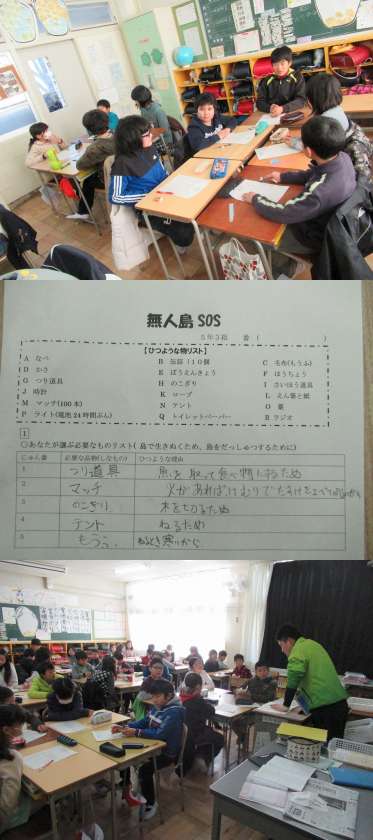 無人島 SOS
5年3組　番（　　　　）
【ひつような物リスト】
A なべ　B 缶詰（10個　C 毛布(もうふ)
D かさ　E ぼうえんきょう　F ほうちょう
G つり道具　H のこぎり　I さいほう道具
J 時計　K ロープ　L えん筆と紙
M マッチ(100本)　N テント　O 薬
P ライト(電池24時間ぶん)　Q トイレットペーパー　R ラジオ
1
○あなたが選ぶ必要なものリスト( 島で生きぬくため、島をだっしゅつするために)
じゅん番　必要な品物(しなもの)　ひつような理由
1　つり道具　魚を取って食べ物にするため
2　マッチ　火があればけむりでたすけをよべて
3　のこぎり　木を切るため
4　テント　ねるため
5　もうふ　ねるとき寒いから